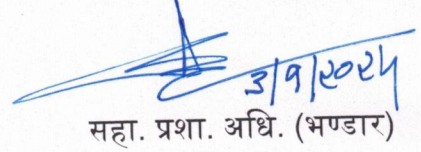 ३/१/२०२५
सहा. प्रशा. अधि. (भण्डार)